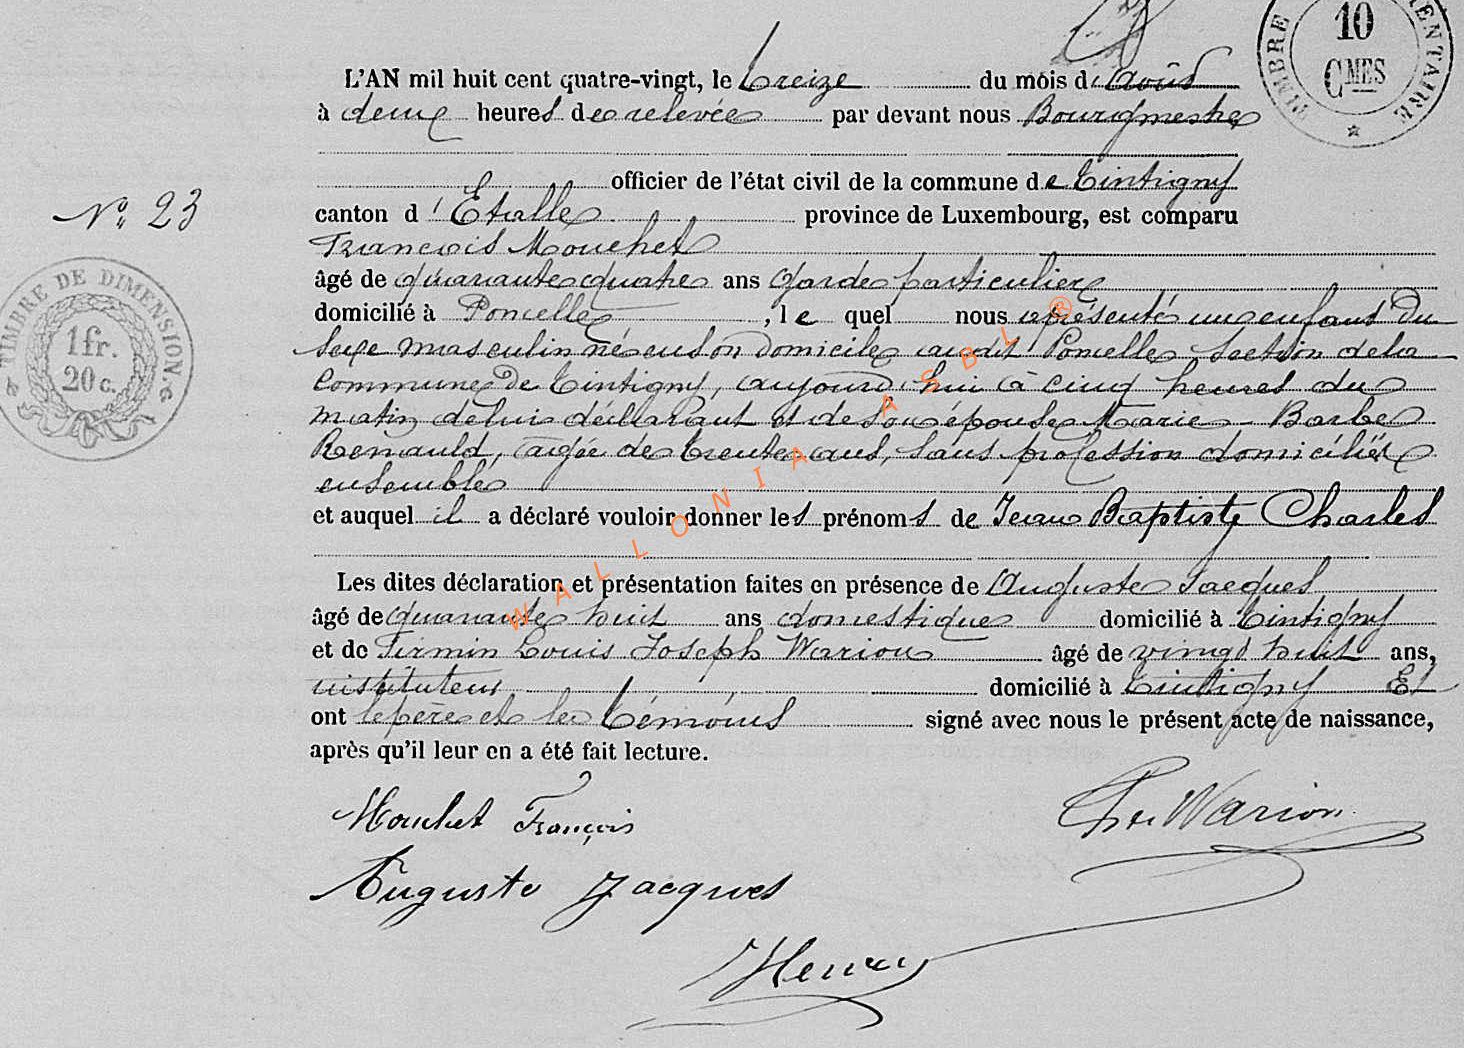 TIMBRE
10
CMES
L'AN mil huit cent quatre-vingt, le treize du mois d'août
à deux heures de relevée par devant nous Bourgmestre
officier de l'état civil de la commune de Tintigny
N° 23
canton d'Etalle province de Luxembourg, est comparu
François Mouchet
âgé de quarante quatre ans garde particulier
domicilié à Poncelle, le quel nous a présenté un enfant du
sexe masculin né en son domicile au dit Poncelle, section de la
commune de Tintigny, aujourd'hui à cinq heures du
matin de lui déclarant et de son épouse Marie Barbe
Renauld, âgée de trente ans, sans profession domiciliés
ensemble
et auquel il a déclaré vouloir donner les prénoms de Jean Baptiste Charles
TIMBRE DE DIMENSION.
1 fr.
20 c.
Les dites déclaration et présentation faites en présence de Auguste Jacques
âgé de quarante huit ans domestique domicilié à Tintigny
et de Firmin Louis Joseph Warion âgé de vingt huit ans,
instituteur, domicilié à Tintigny Et
ont le père et les témoins signé avec nous le présent acte de naissance,
après qu'il leur en a été fait lecture.
Mouchet François
Warion
Auguste Jacques
Henry
WALLONIA ASBL ®